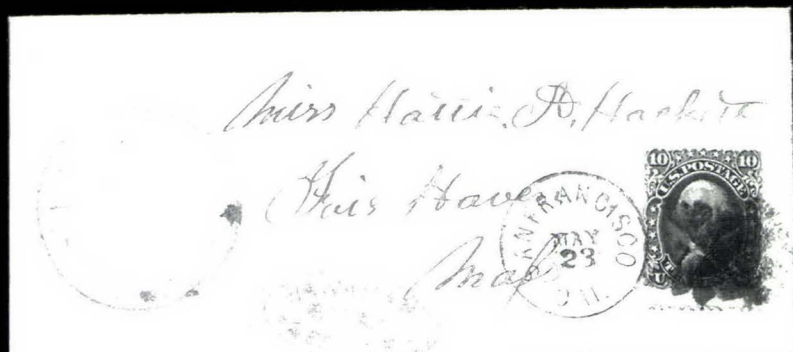 Miss Hattie A. Hackett
Fair Haven
Mass
SAN FRANCISCO
MAY
23
CAL.
10 10
U.S. POSTAGE